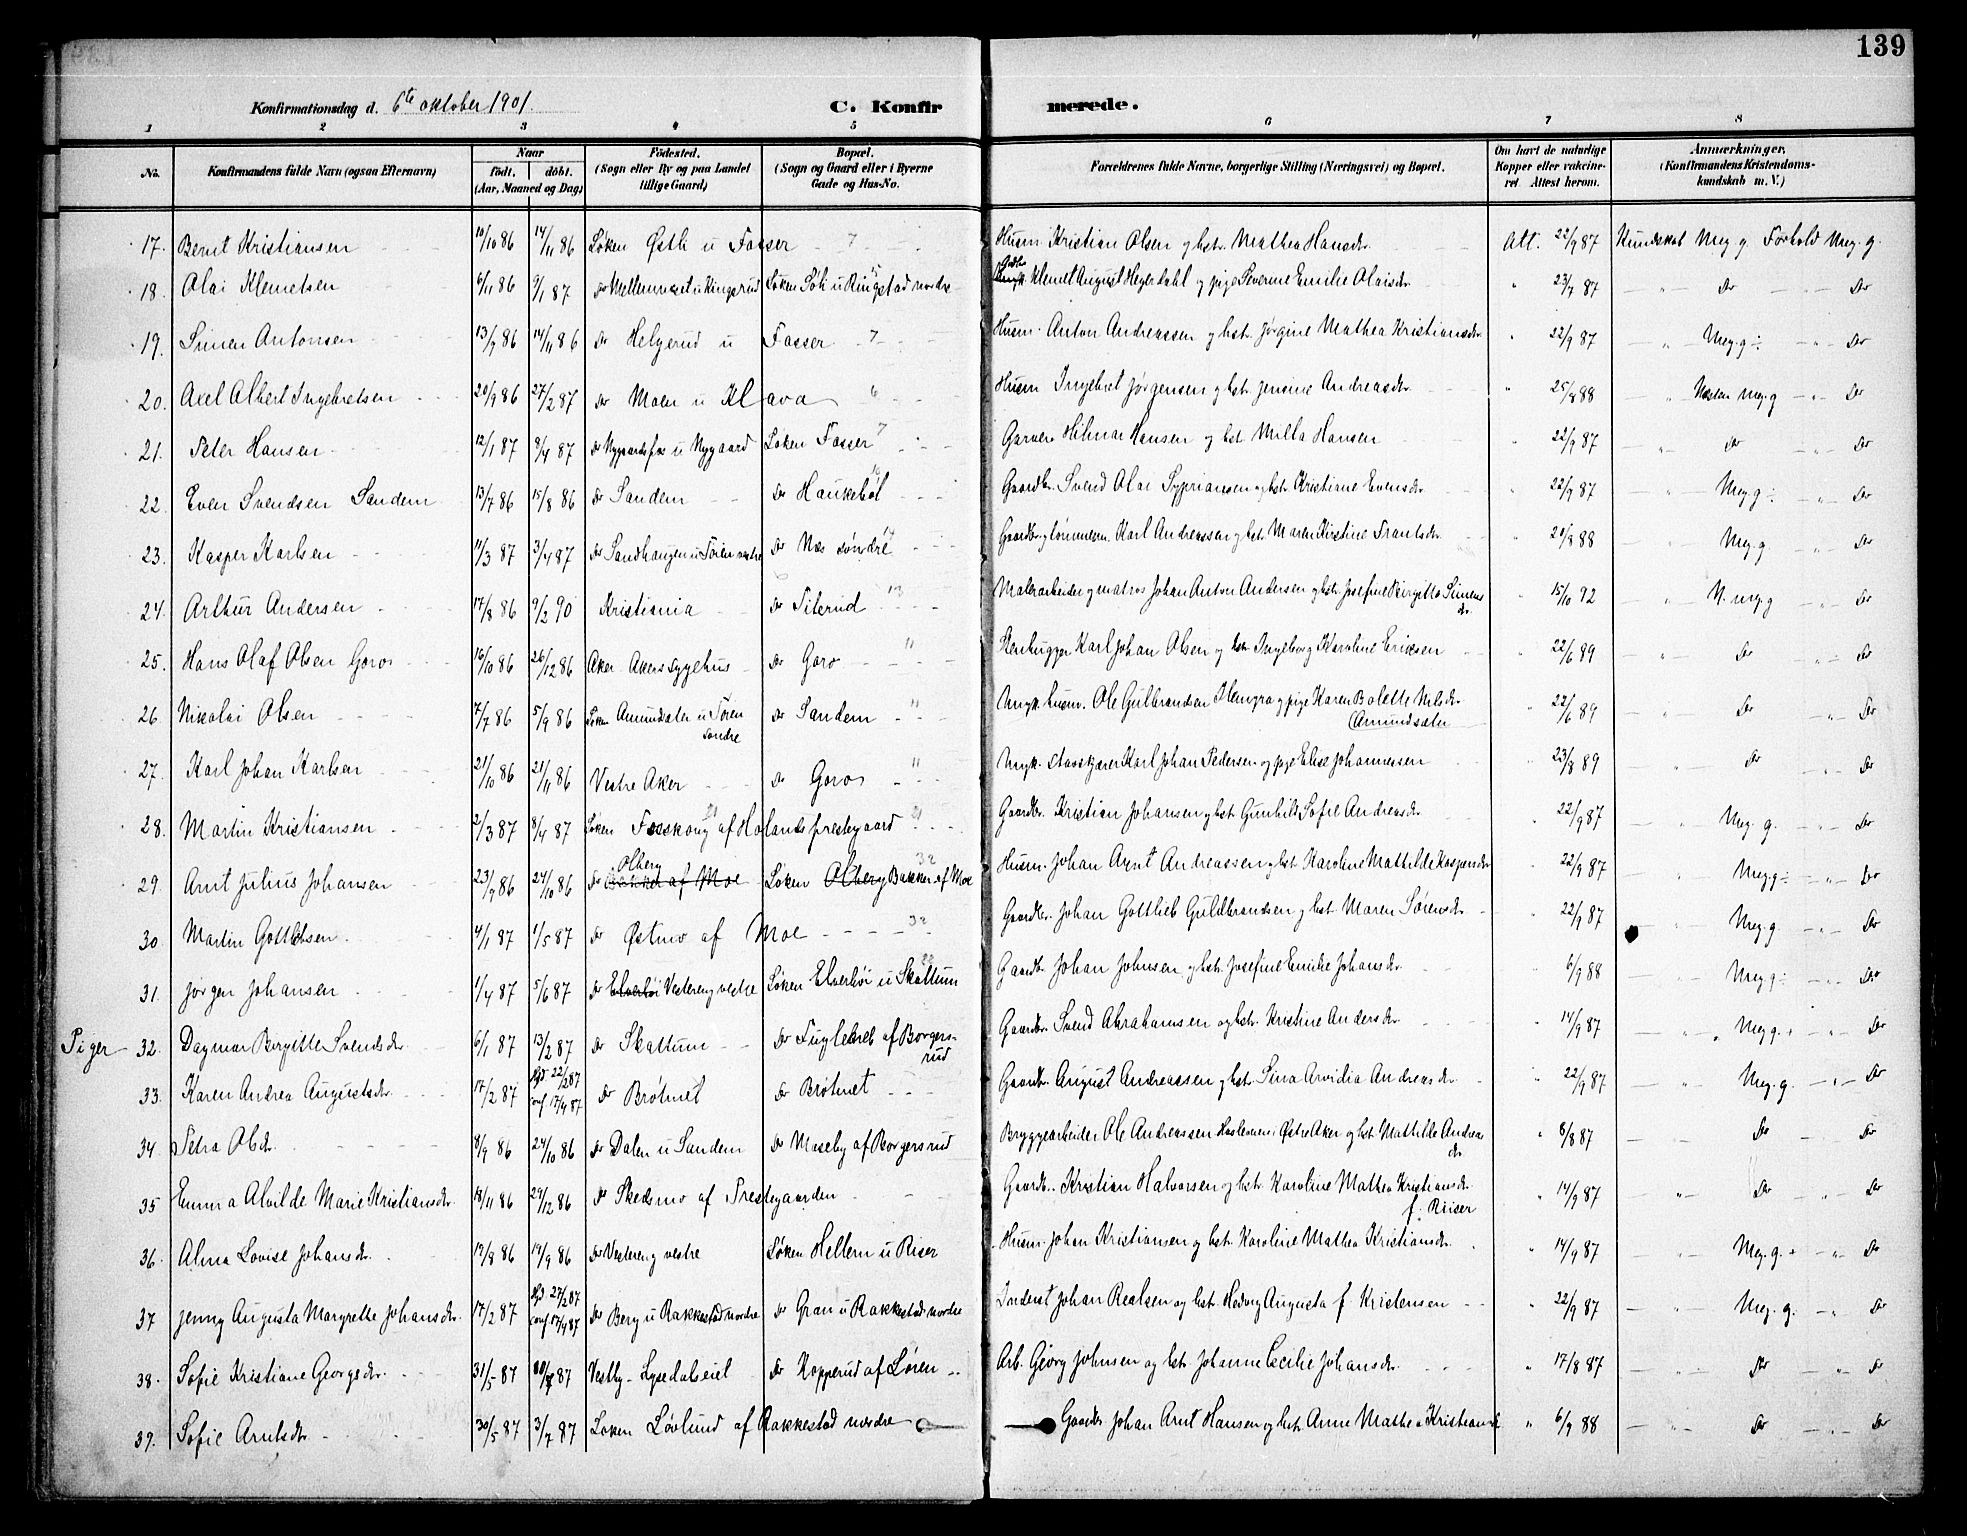 139
Konfirmationsdag d. 6te oktober 1901.
C. Konfirmerede.
1 2 3 4 5 6 7 8
No. Konfirmandens fulde Navn (ogsaa Efternavn) Naar født. døbt. (Aar, Maaned og Dag) Fødested. (Sogn eller By og paa Landet tillige Gaard) Bopæl. (Sogn og Gaard eller i Byerne Gade og Hus-No. Forældrenes fulde Navne, borgerlige Stilling (Næringsvei) og Bopæl. Om havt de naturlige Kopper eller vakcineret Attest herom. Anmærkninger, (Konfirmandens Kristendomskundskab m. V.)
17. Bernt Kristiansen 10/10 86 14/11 86 Løken Østli u Fosser 7 Husm. Kristian Olsen og hst. Mathea Hansdr. Att. 22/9 87 Kundskab Meg. g. Forhold Meg. g.
18. Olai Klemetsen 6/11 86 9/1 87 Do Mellemnæset u Kingsrud Løken Søli u Ringstad nordre Klemet August Hegerdahl og pige Severine Emilie Olaisdr. " 23/9 87 Do Do
19. Simen Antonsen 13/9 86 14/11 86 Do Helgerud u Fosser 7 Husm. Anton Andreassen og hst. Jørgine Mathea Kristiansdr. " 22/9 87 Meg. g ÷ Do
20. Axel Albert Ingebretsen 20/9 86 27/2 87 Do Moen u Klava 6 Husm Ingebret Jørgensen og hst. Jensine Andreasdr. " 25/8 88 Næsten meg. g Do
21. Peter Hansen 12/1 87 9/4 87 Do Nygaardsfos u Nygaard Løken Fosser 7 Garver Hilmar Hansen og hst. Milla Hansen " 22/9 87 Do Do
22. Even Svendsen Sandem 13/7 86 15/8 86 Do Sandem Do Haukebøl 10 Gaardbr. Svend Olai Sypriansen og hst. Kristine Evensdr. " 22/9 87 Meg. g ÷ Do
23. Kasper Karlsen 11/3 87 3/4 87 Do Sandhaugen u Tøien nordre Do Næs søndre Gaardbr. og tømmerm. Karl Andreassen og hst. Maren Kristine Frantsdr. " 20/8 88 Meg. g Do
24. Arthur Andersen 17/8 86 9/2 90 Kristiania Do Tilerud 13 Malerarbeider og matros Johan Anton Andersen og hst. Josefine Birgitte Simensdr. " 15/10 92 N. meg. g Do
25. Hans Olaf Olsen Goro 16/10 86 26/12 86 Aker Akers sygehus Do Goro 11 Stenhugger Karl Johan Olsen og hst. Ingeborg Karoline Eriksen " 22/6 89 Do Do
26. Nikolai Olsen 7/7 86 5/9 86 Løken Amundsæter u Tøien søndre Do Sandem 11 Ungk. husm. Ole Gulbrandsen Hemgra og pige Karen Bolette Nilsdr. (Amundsæter " 22/6 89 Do Do
27. Karl Johan Karlsen 21/10 86 21/11 86 Vestre Aker Do Goro 11 Ungk. Karl Johan Pedersen og pige Elise Johannessen 23/8 89 Do Do
28. Martin Kristiansen 2/3 87 8/4 87 Løken Fosskong af Hølands prestegaard 21 Gaardbr. Kristian Johansen og hst. Gunhild Sofie Andreasdr. 22/9 87 Meg. g. Do
29. Arnt Julius Johansen 23/9 86 24/10 86 Do Olberg af Moe Løken Olberg Bakken af Moe 32 Husm. Johan Arnt Andreassen og hst. Karoline Mathilde Kaspersdr. " 22/9 87 Meg. g ÷ Do
30. Martin Gottliebsen 4/1 87 1/5 87 Do Østmo af Moe 32 Gaardbr. Johan Gottlieb Guldbrandsen og hst. Maren Sørensdr. " 22/9 87 Meg. g. Do
31. Jørgen Johansen 1/4 87 5/6 87 Do Elverhøi Vestereng vestre Løken Elverhøi u Skattum Gaardbr. Johan Johnsen og hst. Josefine Emilie Johansdr. " 6/9 88 Meg. g ÷ Do
Piger 32. Dagmar Birgitte Svendsdr. 6/1 87 13/2 87 Do Skattum Do Fuglehed af Borgersrud Gaardbr. Svend Abrahamsen og hst. Kristine Andersdr. " 14/9 87 Meg. g. + Do
33. Karen Andrea Augustsdr. 17/2 87 hjd 22/2 87 conf 17/4 87 Do Brøtnet Do Brøtnet Gaardbr. August Andreassen og hst. Lina Arvidia Andreasdr. " 22/9 87 Meg. g. Do
34. Petra Olsdr. 8/9 86 24/10 86 Do Dalen u Sandem Do Maseby af Borgersrud Bryggearbeider Ole Andreassen Haslevan i Østre Aker og hst. Mathilde Andreasdr. " 8/8 87 Do Do
35 Emma Alvilde Marie Kristiansdr. 18/11 86 29/12 86 Do Skedsmo af Prestegaarden Gaardbr. Kristian Halvorsen og hst. Karoline Mathea Kristiansdr. f. Riiser " 14/9 87 Do Do
36. Alma Lovise Johansdr. 19/8 86 19/9 86 Do Vestereng vestre Løken Hellern u Riser Husm. Johan Kristiansen og hst. Karoline Mathea Kristiansdr. " 14/9 87 Meg. g. + Do
37 Jenny Augusta Margrethe Johansdr. 17/2 87 hjd 27/2 87 conf 17/4 87 Do Berg u Rakkestad nordre Do Gran u Rakkestad nordre Inderst Johan Realsen og hst. Hedvig Augusta f. Kristensen " 22/9 87 Meg. g. Do
38. Sofie Kristiane Georgsdr. 31/5 87 10/7 87 Vestby - Lysedalseiet Do Kopperud af Løren Arb. Georg Johnsen og hst. Johanne Cecilie Johansdr. " 17/8 87 Do Do
39. Sofie Arntsdr. 30/5 87 3/7 87 Løken Løvlund af Rakkestad nordre Gaardbr Johan Arnt Hansen og hst. Anne Mathea Kristiansd " 6/9 88 Do Do